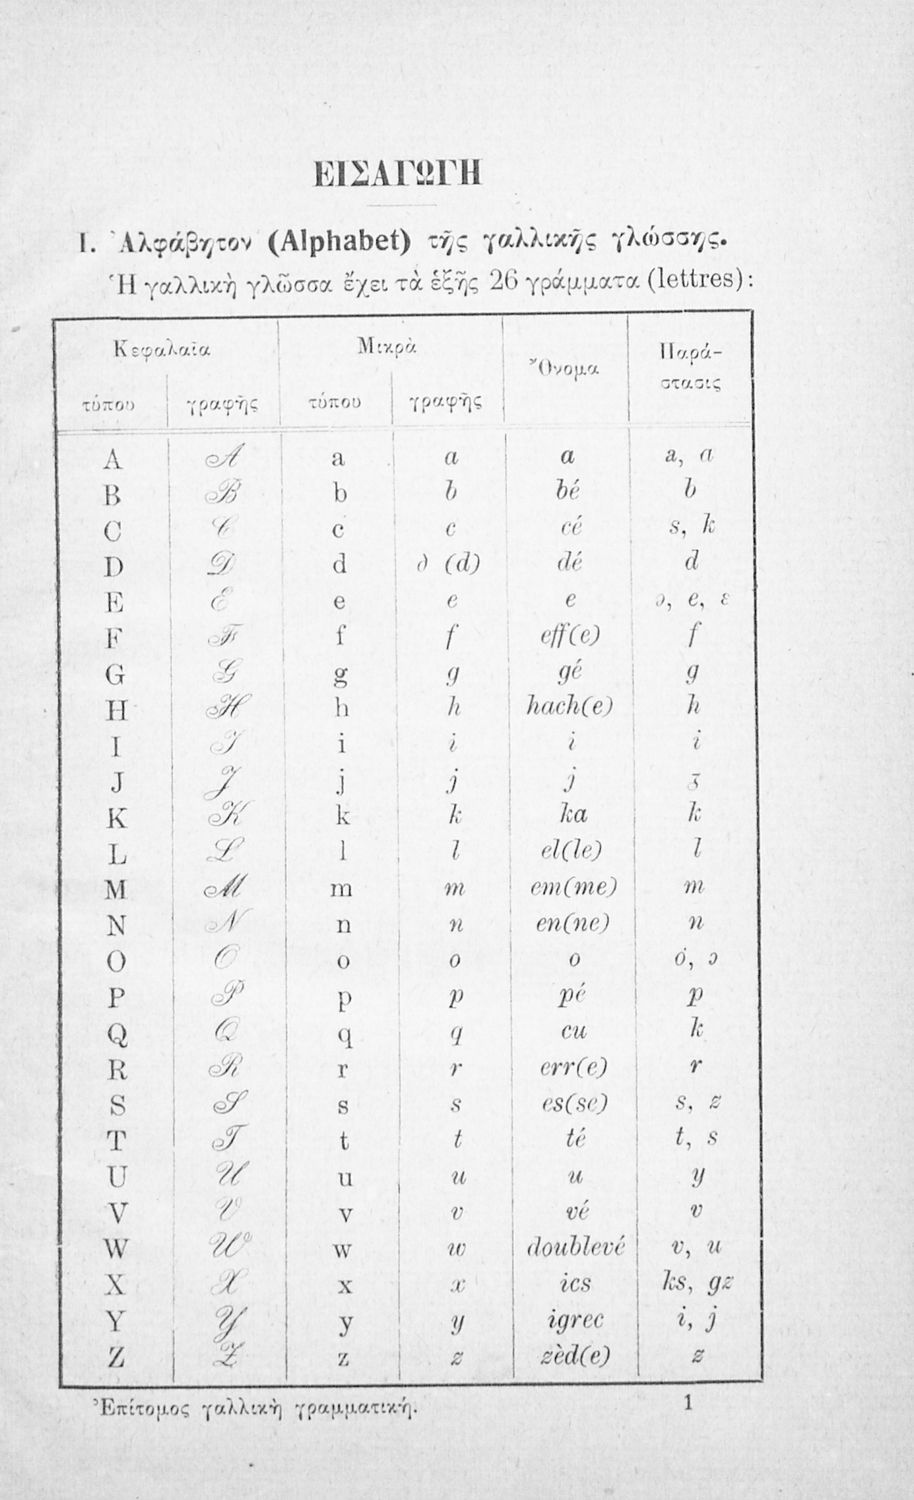 ΕΙΣΑΓΩΓΗ
I. Ἀλφάβητον (Alphabet) τῆς γαλλικῆς γλώσσης.
Ἡ γαλλικὴ γλῶσσα ἔχει τὰ ἑξῆς 26 γράμματα (lettres):
Κεφαλαῖα Μικρὰ Ὄνομα Παρά-
στασις
τύπου γραφῆς τύπου γραφῆς
A A a a a a, ɑ
B B b b bé b
C C c c cé s, k
D D d ∂ (d) dé d
E E e e e ə, e, ε
F F f f eff(e) f
G G g g gé g
H H h h hach(e) h
I I i i i i
J J j j j ʒ
K K k k ka k
L L l l el(le) l
M M m m em(me) m
N N n n en(ne) n
O O o o o ó, ɔ
P P p p pé p
Q Q q q cu k
R R r r err(e) r
S S s s es(se) s, z
T T t t té t, s
U U u u u y
V V v v vé v
W W w w doublevé v, u
X X x x ics ks, gz
Y Y y y igrec i, j
Z Z z z zèd(e) z
Ἐπίτομος γαλλικὴ γραμματική. 1